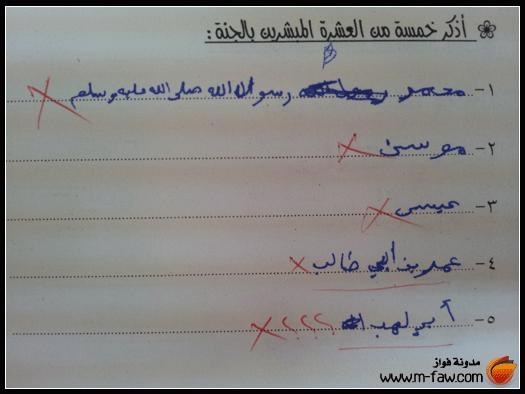 أذكر خمسة من العشرة المبشرين بالجنة :
١- محمد رسول الله صلى الله عليه وسلم
٢- موسى
٣- عيسى
٤- عمر بن أبي طالب
٥- أبي لهب ؟؟؟؟
مدونة فواز
www.m-faw.com